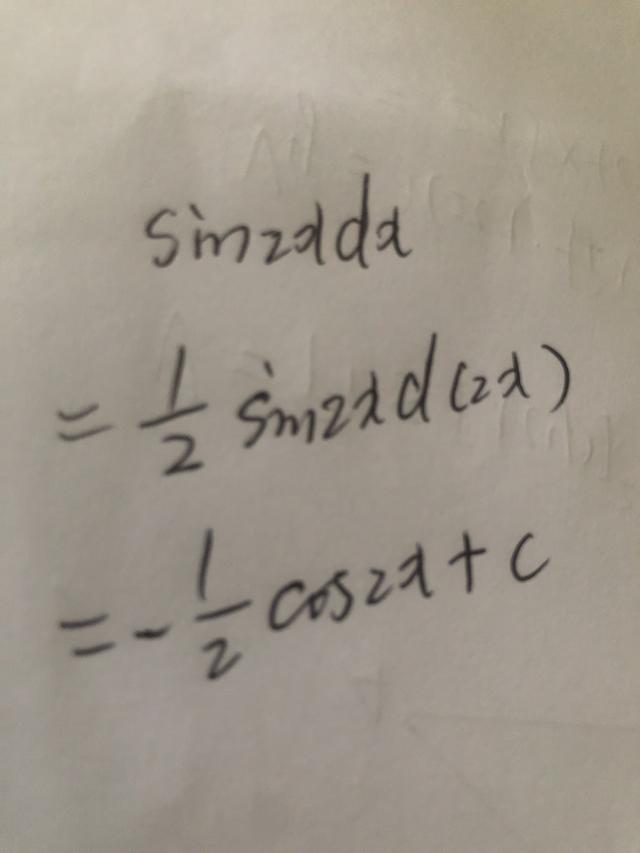 sin2xdx
= 1/2 sin2xd(2x)
= - 1/2 cos2x + c